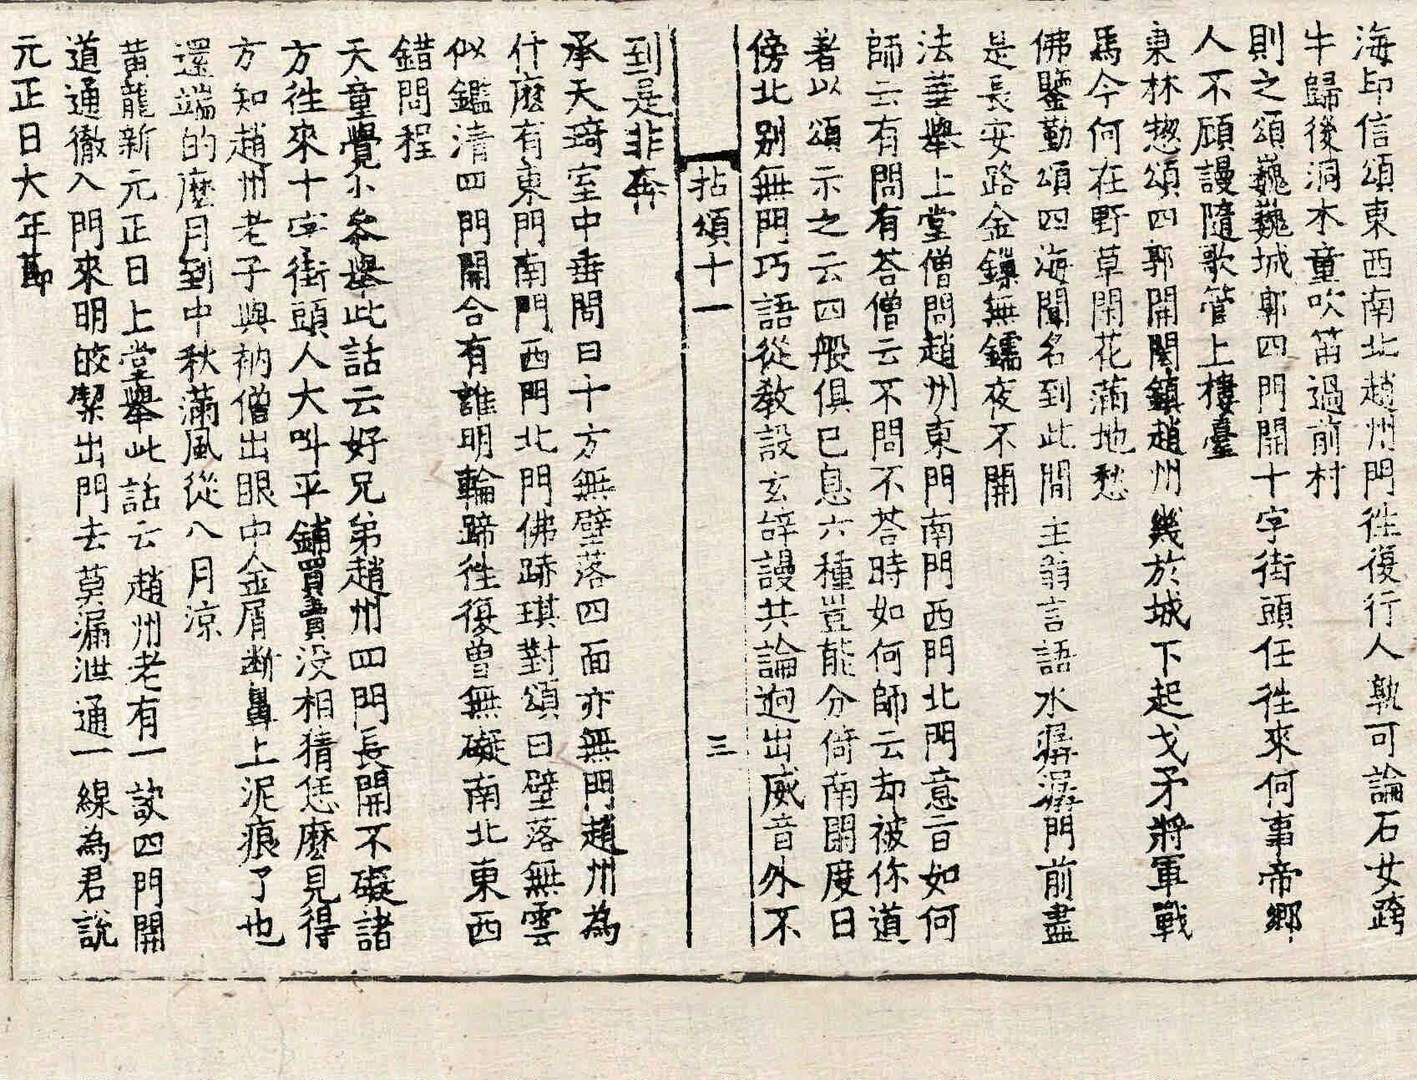 海印信頌東西南北趙州門徃復行人孰可論石女跨
牛歸後洞木童吹笛過前村
則之頌巍巍城郭四門開十字街頭任徃來何事帝鄉
人不顧謾隨歌管上樓臺
東林惣頌四郭開閞鎮趙州幾於城下起戈矛將軍戰
馬今何在野草閑花滿地愁
佛鑒勤頌四海聞名到此間主翁言語水潺潺門前盡
是長安路金鏁無鑐夜不開
法華舉上堂僧問趙州東門南門西門北門意旨如何
師云有問有荅僧云不問不荅時如何師云却被你道
著以頌示之云四般俱已息六種豈能分倚南閞度日
傍北别無門巧語從教設玄辝謾共論逈出威音外不
拈頌十一 三
到是非奔
承天琦室中垂問曰十方無壁落四面亦無門趙州為
什麽有東門南門西門北門佛跡琪對頌曰壁落無雲
似鑑清四門開合有誰明輪蹄徃復曾無礙南北東西
錯問程
天童覺小叅舉此話云好兄弟趙州四門長開不礙諸
方徃來十字街頭人大叫平鋪買賣没相猜恁麽見得
方知趙州老子與衲僧出眼中金屑断鼻上泥痕了也
還端的麽月到中秋滿風從八月凉
黃龍新元正日上堂舉此話云趙州老有一訣四門開
道通徹入門來明皎潔出門去莫漏泄通一線為君說
元正日大年節